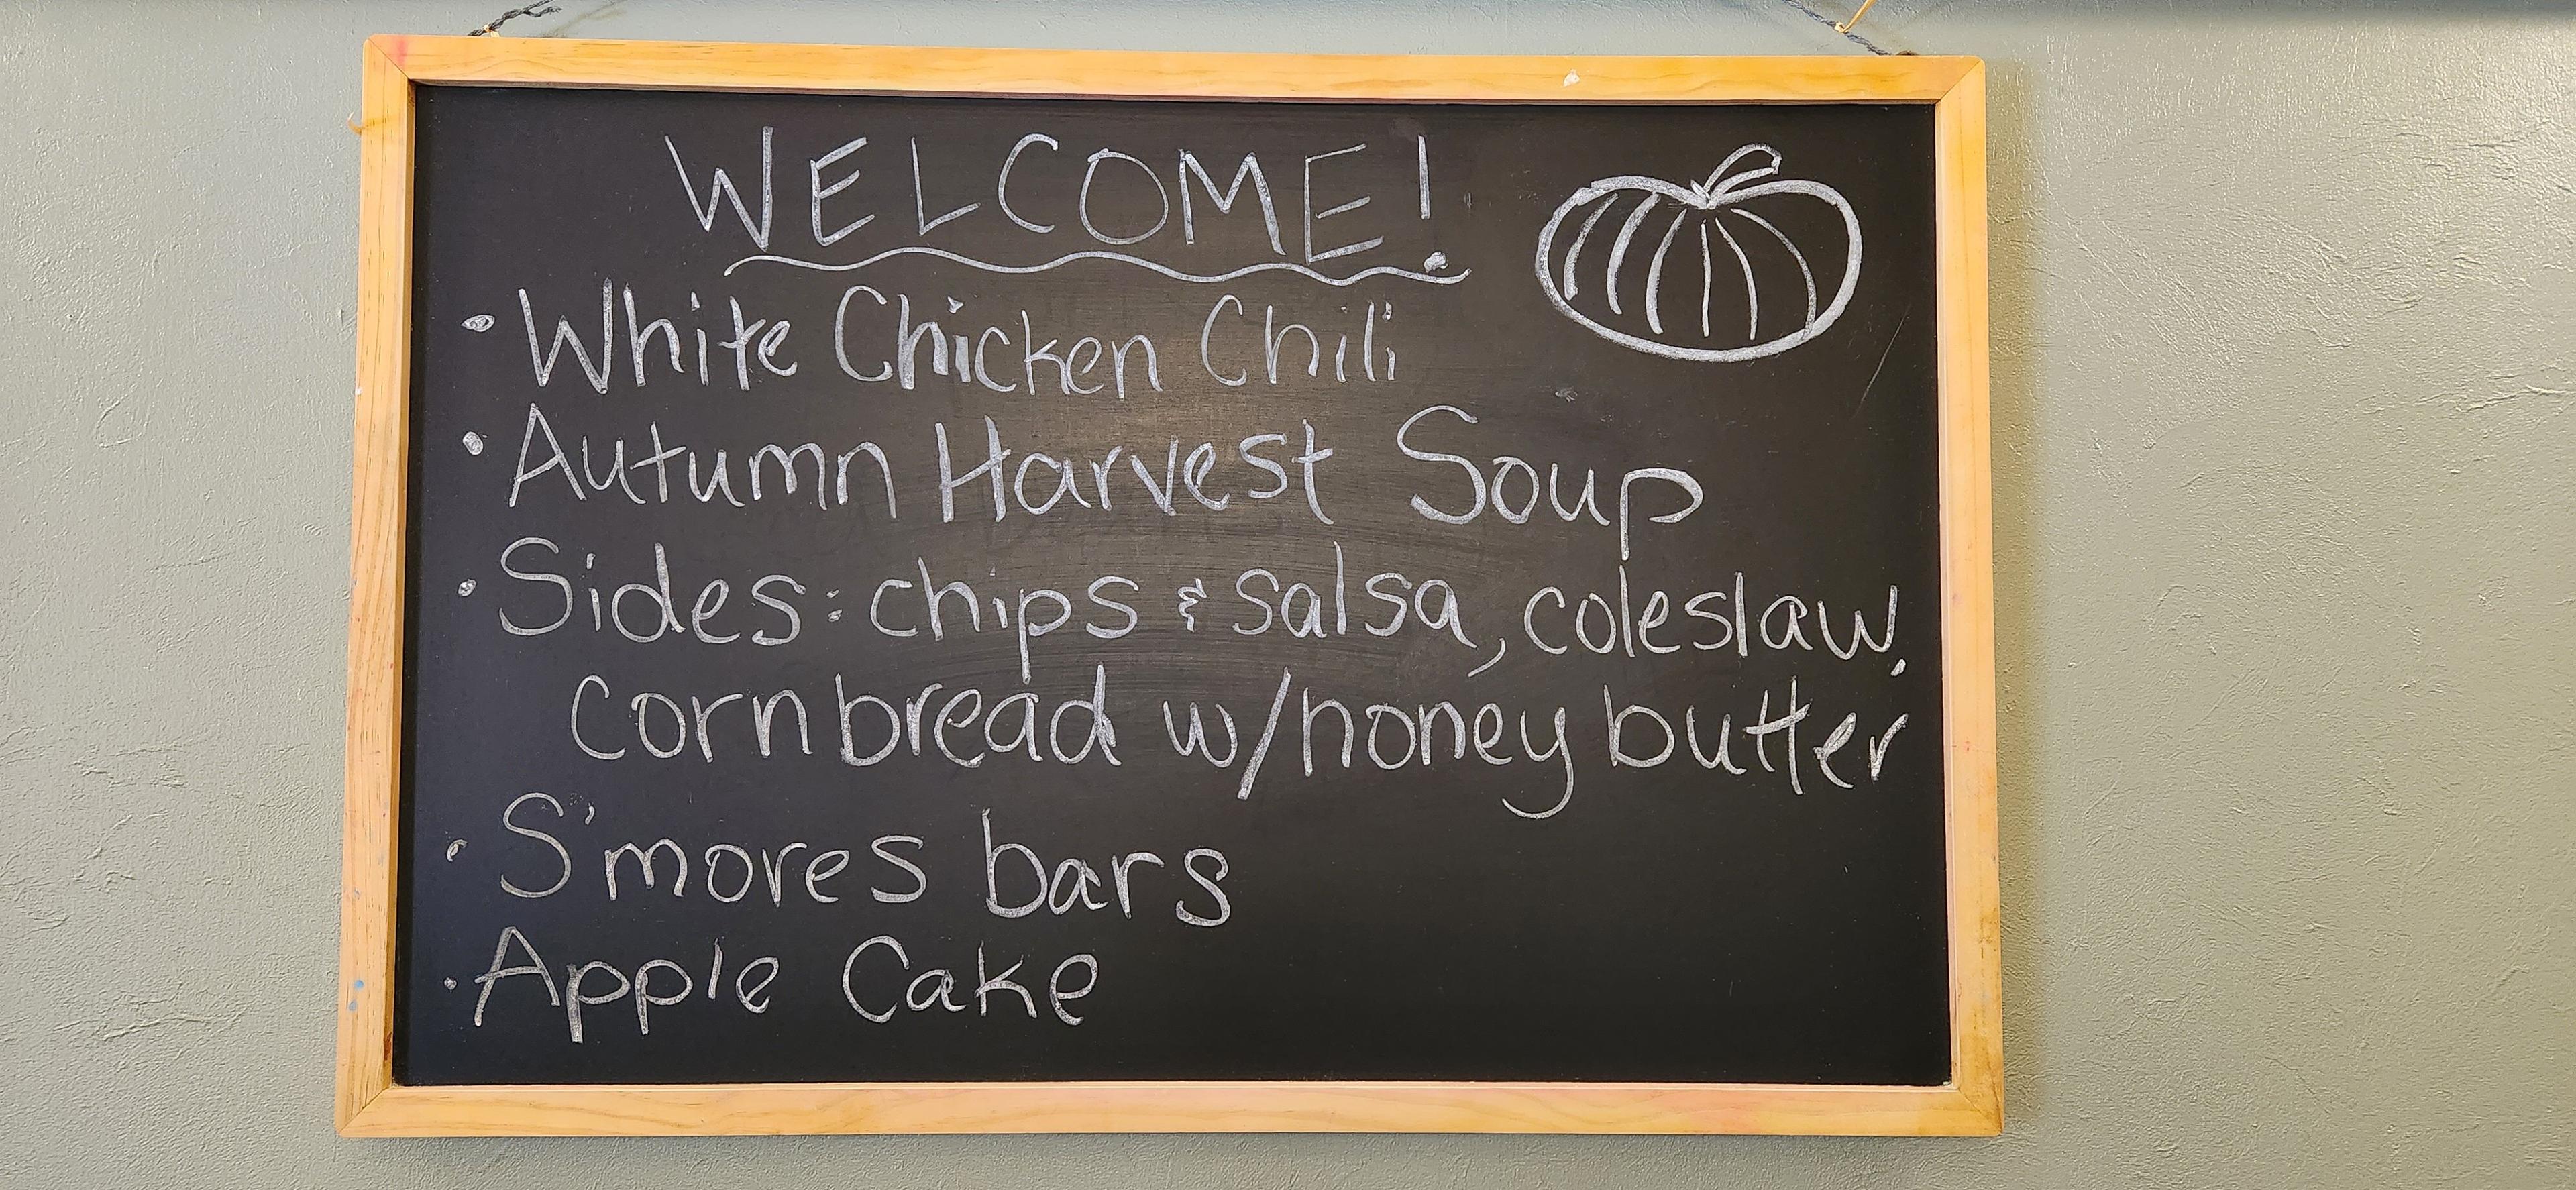 WELCOME!
• White Chicken Chili
• Autumn Harvest Soup
• Sides: chips & salsa, coleslaw,
cornbread w/honey butter
• S'mores bars
• Apple Cake